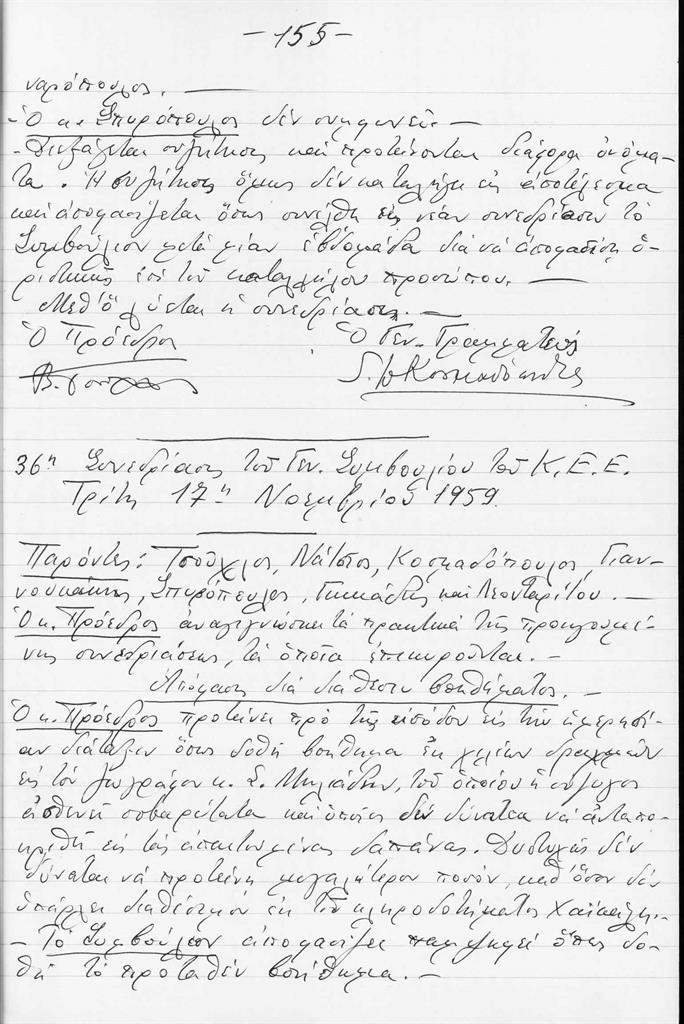 - 155 -
ναρόπουλος. —
- Ὁ κ. Σπυρόπουλος δέν συμφωνεῖ. —
- Διεξάγεται συζήτησις καί προτείνονται διάφορα ὀνόμα-
τα. Ἡ συζήτησις ὅμως δέν καταλήγει εἰς ἀποτέλεσμα
καί ἀποφασίζεται ὅπως συνέλθῃ εἰς νέαν συνεδρίασιν τό
Συμβούλιον μετά μίαν ἑβδομάδα διά νά ἀποφασίσῃ ὁ-
ριστικῶς ἐπί τοῦ καταλλήλου προσώπου. —
Μεθ' ὅ λύεται ἡ συνεδρίασις. —
Ὁ Πρόεδρος Ὁ Γεν. Γραμματεύς
36η Συνεδρίασις τοῦ Γεν. Συμβουλίου τοῦ Κ.Ε.Ε.
Τρίτη 17η Νοεμβρίου 1959.
Παρόντες: Τσοῦχλος, Νάτσιος, Κοσμαδόπουλος, Γιαν-
νουκάκης, Σπυρόπουλος, καί Λεονταρίτου. —
Ὁ κ. Πρόεδρος ἀναγιγνώσκει τά πρακτικά τῆς προηγουμέ-
νης συνεδριάσεως, τά ὁποῖα ἐπικυροῦνται. —
Ἀπόφασις διά διάθεσιν βοηθήματος. —
Ὁ κ. Πρόεδρος προτείνει πρό τῆς εἰσόδου εἰς τήν ἡμερησί-
αν διάταξιν ὅπως δοθῇ βοήθημα ἐκ χιλίων δραχμῶν
εἰς τόν ζωγράφον κ. Σ. Μηλιάδην, τοῦ ὁποίου ἡ σύζυγος
ἀσθενεῖ σοβαρώτατα καί ὁ ὁποῖος δέν δύναται νά ἀνταπο-
κριθῇ εἰς τάς ἀπαιτουμένας δαπάνας. Δυστυχῶς δέν
δύναται νά προτείνῃ μεγαλύτερον ποσόν, καθ' ὅσον δέν
ὑπάρχει διαθέσιμον ἐκ τοῦ κληροδοτήματος
- Τό Συμβούλιον ἀποφασίζει παμψηφεί ὅπως δο-
θῇ τό προταθέν βοήθημα. —